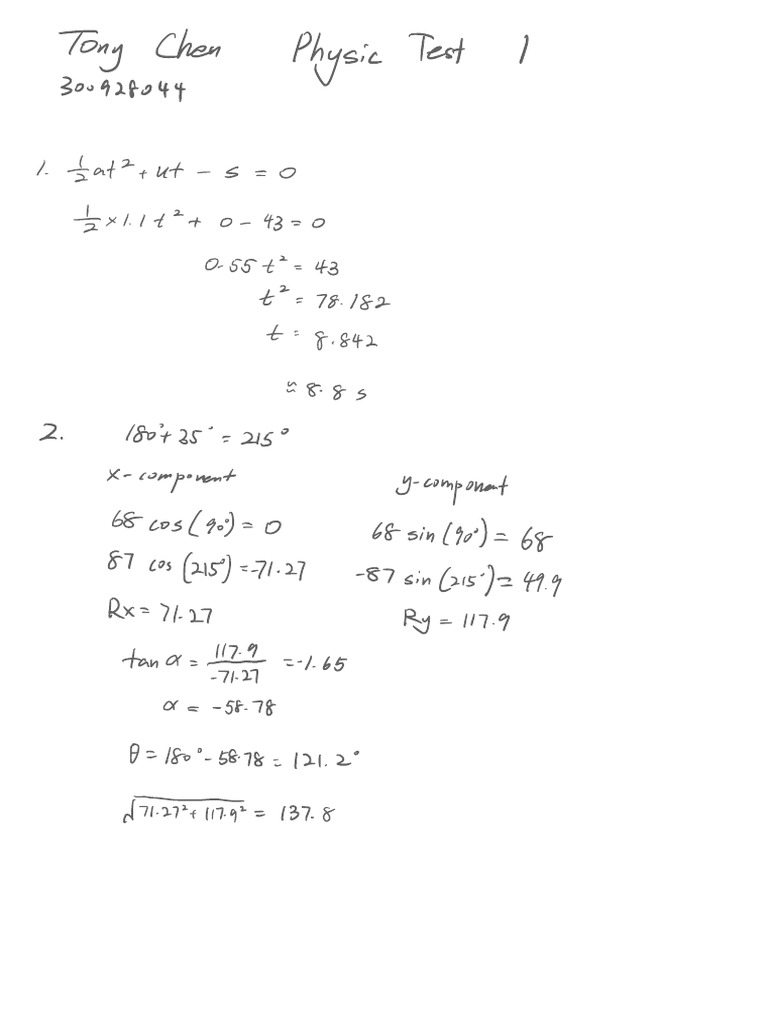 Tony Chen Physic Test 1
300928044
1. 1/2 at² + ut - s = 0
1/2 × 1.1 t² + 0 - 43 = 0
0.55 t² = 43
t² = 78.182
t = 8.842
≈ 8.8 s
2. 180° + 35° = 215°
x-component
68 cos (90°) = 0
87 cos (215°) = -71.27
Rx = 71.27
y-component
68 sin (90°) = 68
-87 sin (215°) = 49.9
Ry = 117.9
tan α = 117.9 / -71.27 = -1.65
α = -58.78
θ = 180° - 58.78 = 121.2°
√71.27² + 117.9² = 137.8